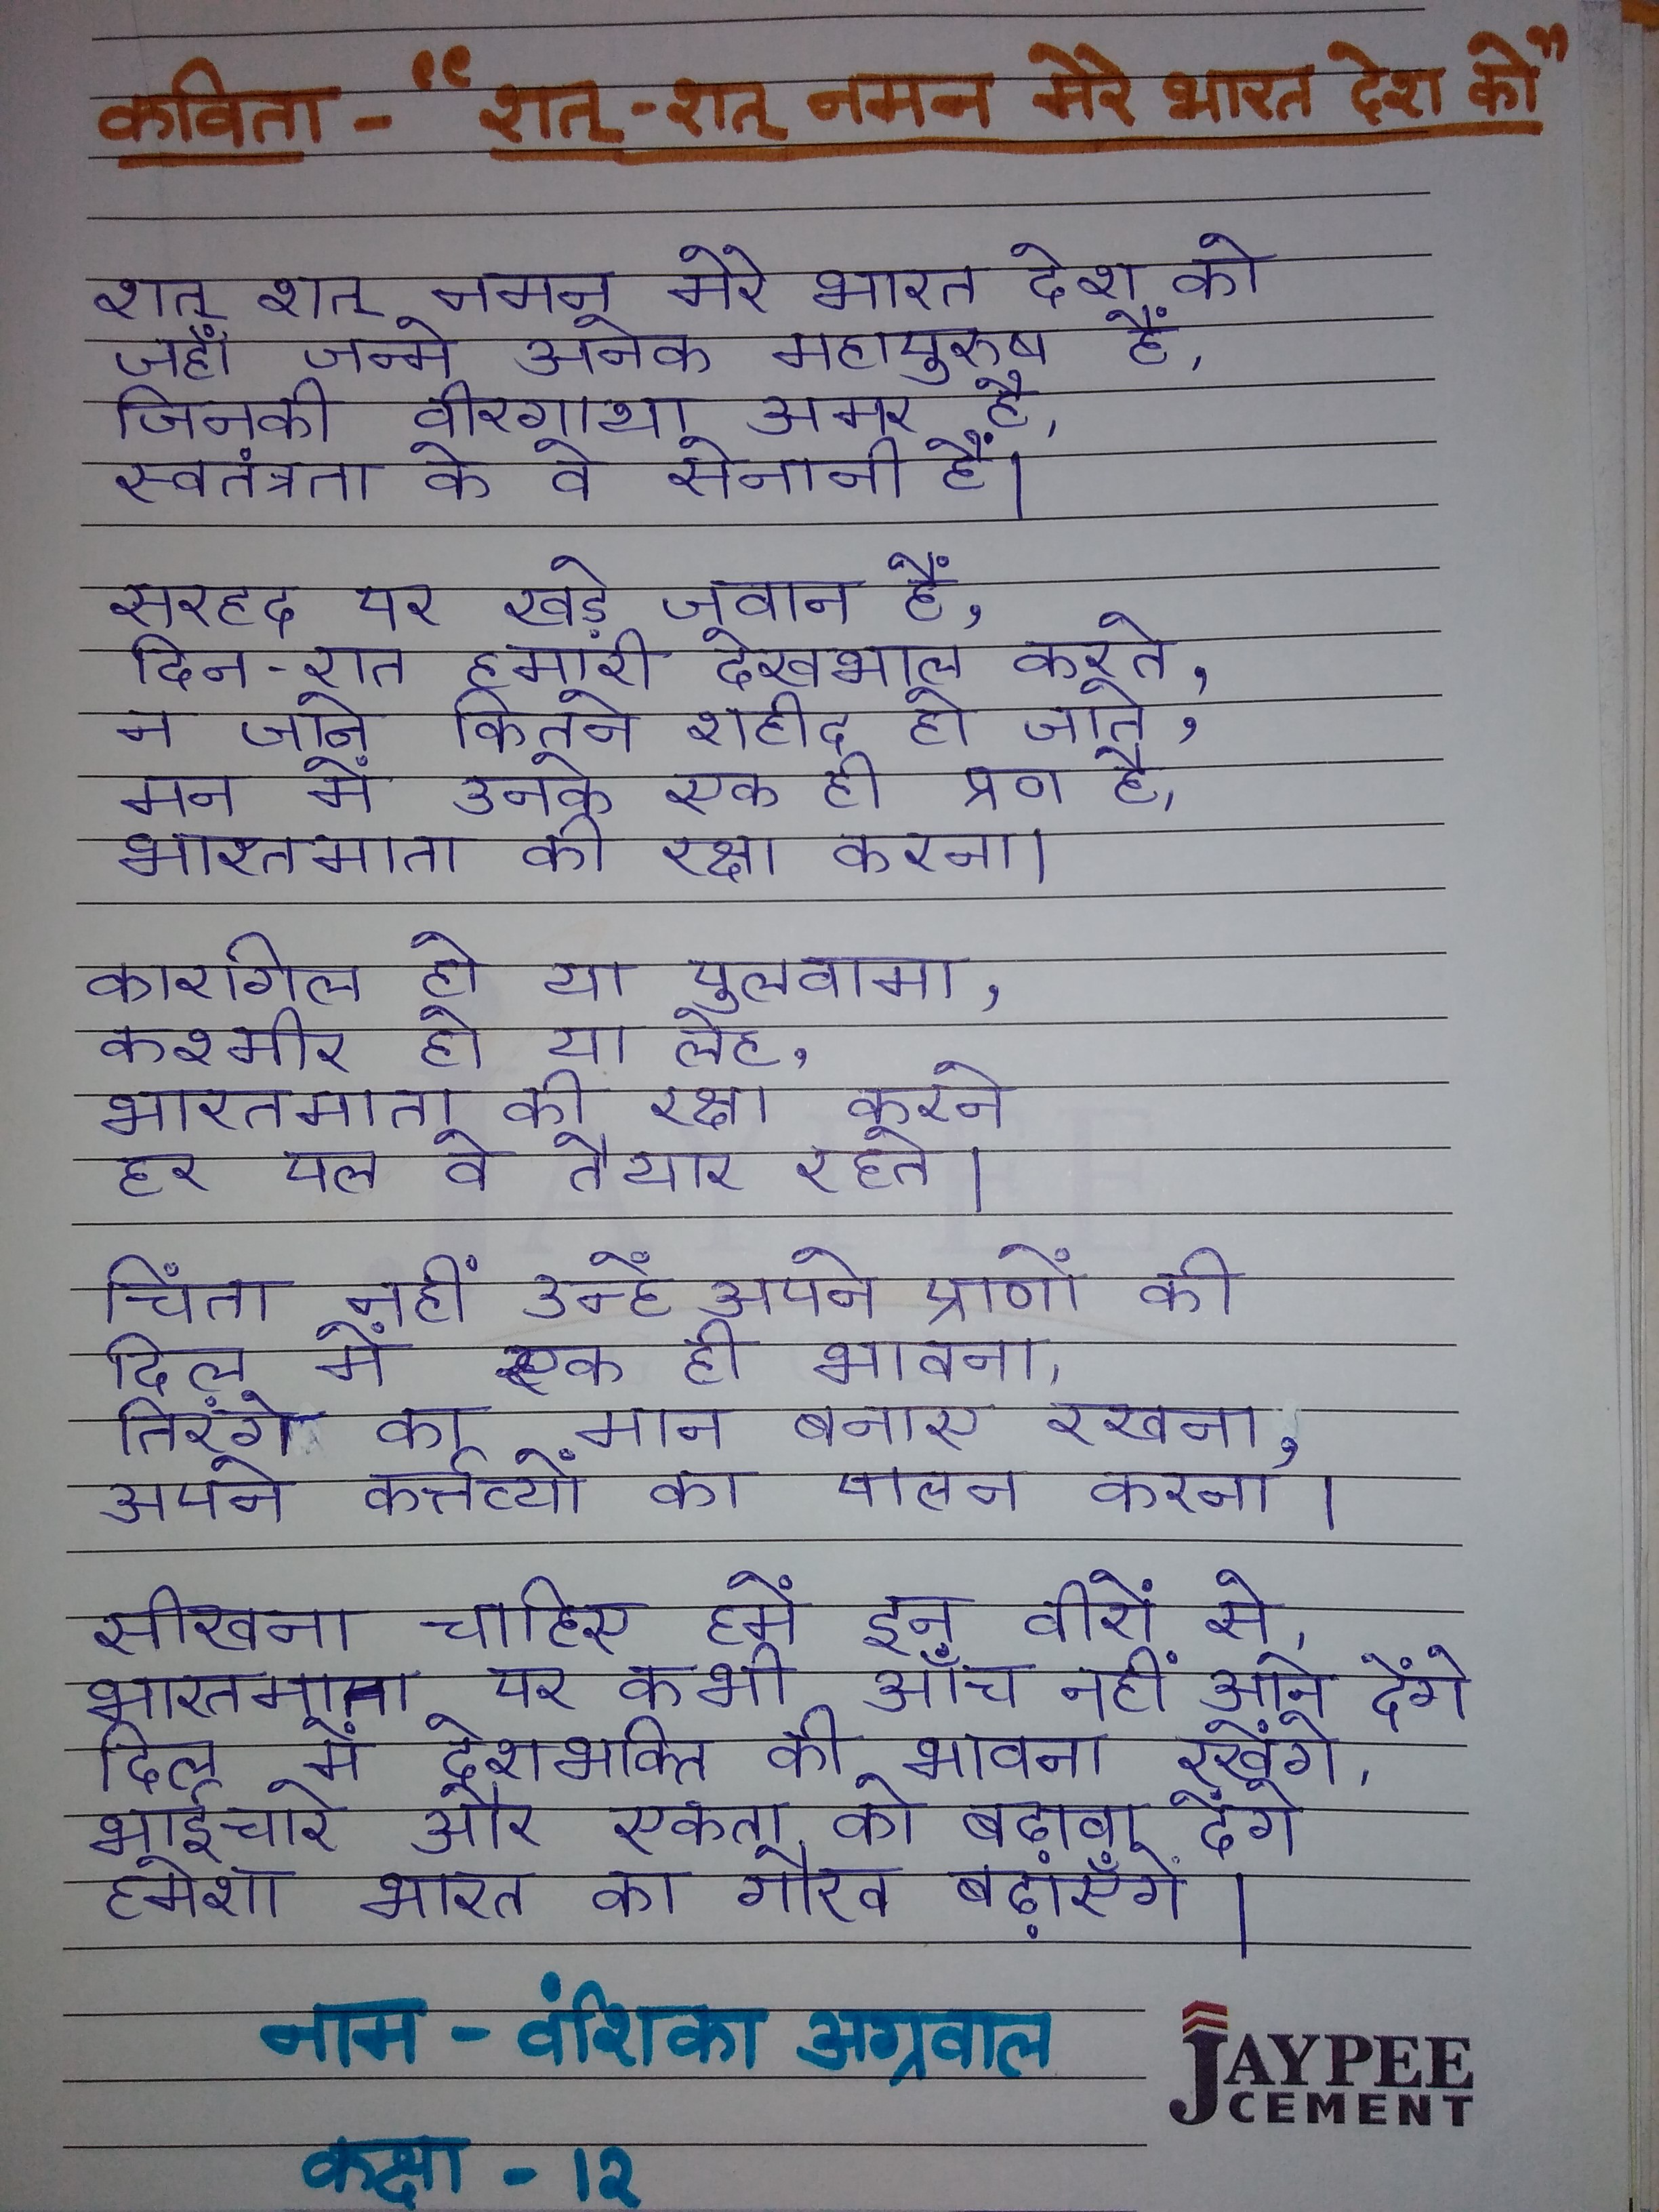 कविता - "शत्-शत् नमन मेरे भारत देश को"
शत् शत् नमन मेरे भारत देश को
जहाँ जन्मे अनेक महापुरुष हैं,
जिनकी वीरगाथा अमर है,
स्वतंत्रता के वे सेनानी हैं।
सरहद पर खड़े जवान हैं,
दिन-रात हमारी देखभाल करते,
न जाने कितने शहीद हो जाते,
मन में उनके एक ही प्रण है,
भारतमाता की रक्षा करना।
कारगिल हो या पुलवामा,
कश्मीर हो या लेह,
भारतमाता की रक्षा करने
हर पल वे तैयार रहते।
चिंता नहीं उन्हें अपने प्राणों की
दिल में एक ही भावना,
तिरंगे का मान बनाए रखना,
अपने कर्त्तव्यों का पालन करना।
सीखना चाहिए हमें इन वीरों से,
भारतमाता पर कभी आँच नहीं आने देंगे
दिल में देशभक्ति की भावना रखेंगे,
भाईचारे और एकता को बढ़ावा देंगे
हमेशा भारत का गौरव बढ़ाएँगे।
नाम - वंशिका अग्रवाल
JAYPEE
CEMENT
कक्षा - १२